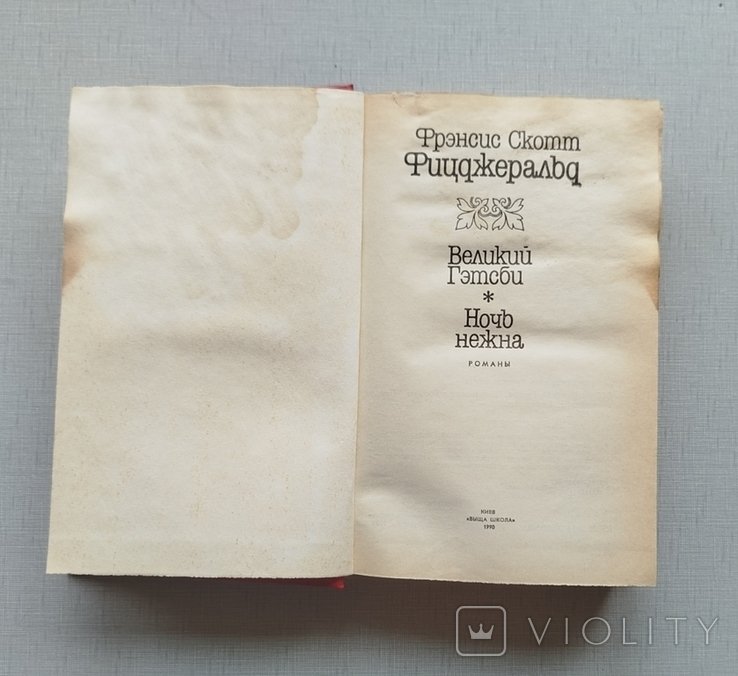 Фрэнсис Скотт
Фицджеральд
Великий
Гэтсби
*
Ночь
нежна
РОМАНЫ
КИЕВ
«ВЫЩА ШКОЛА»
1990
VIOLITY